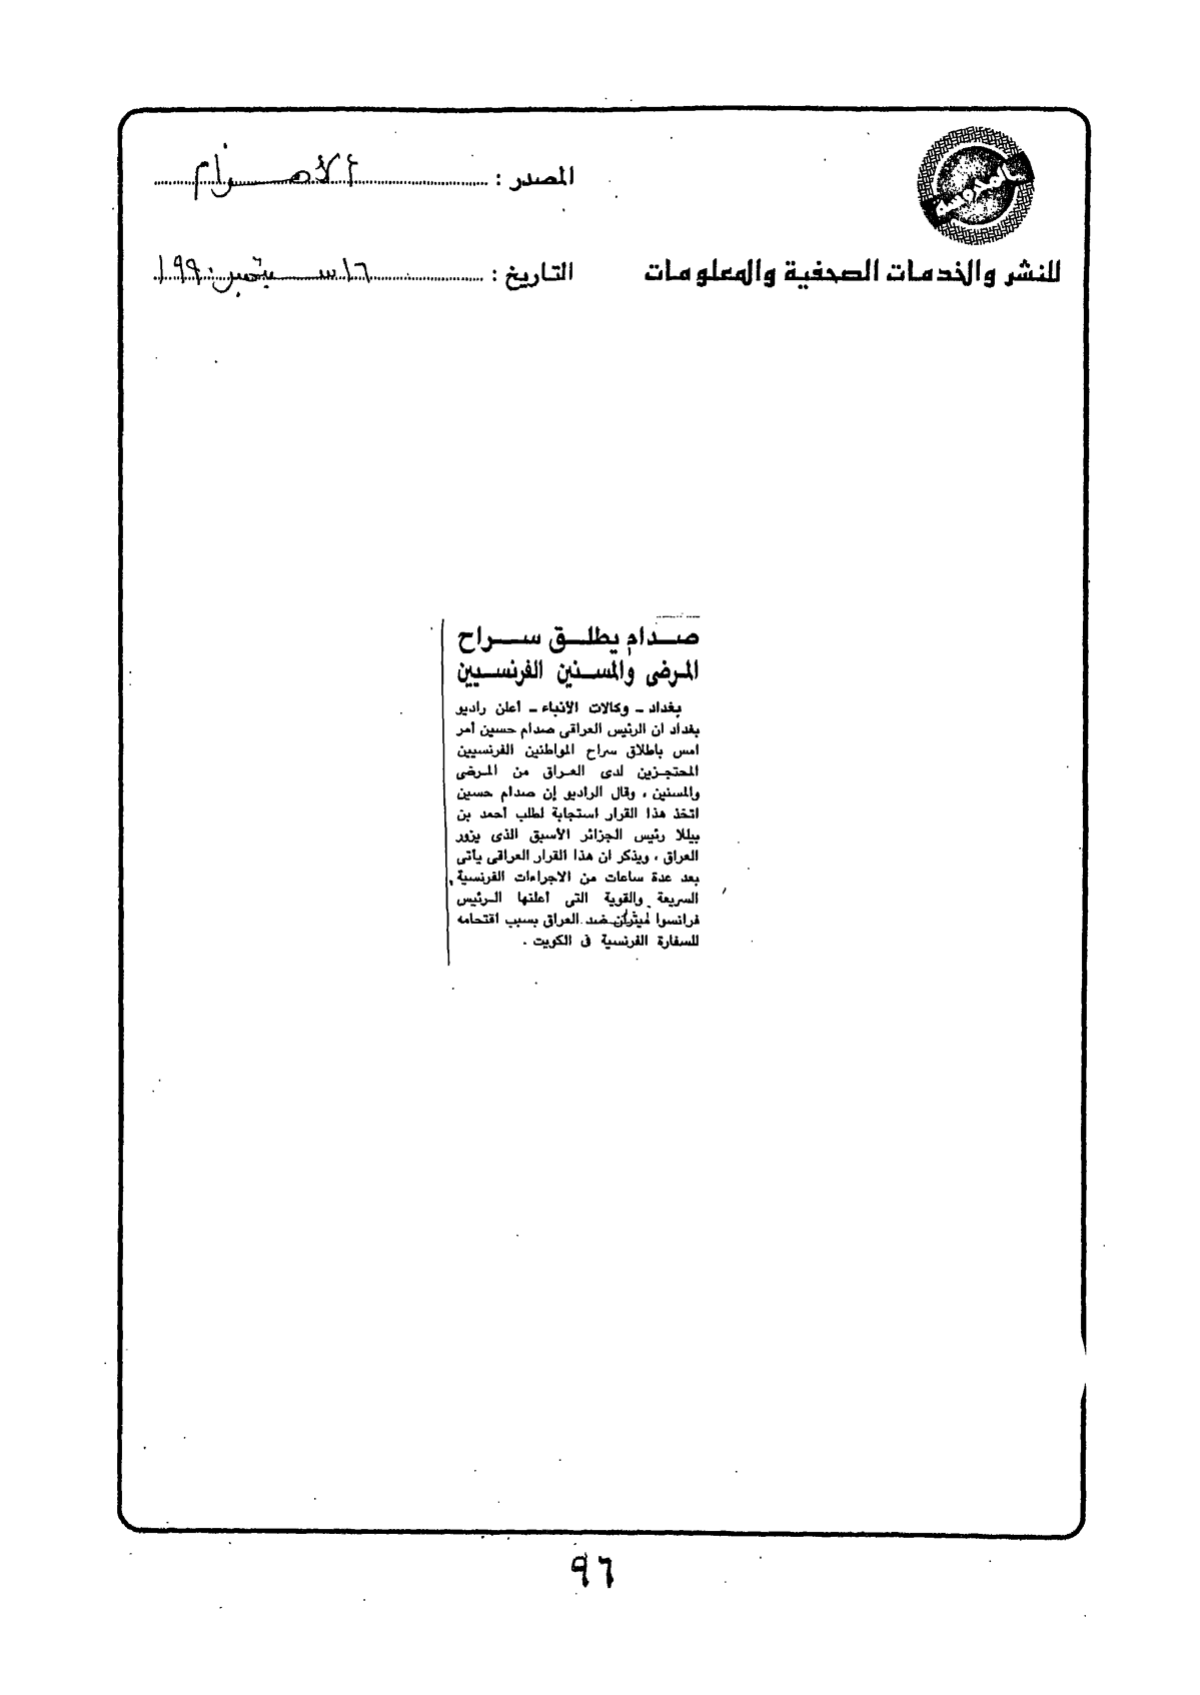 المصدر : الأهرام
التاريخ : ١٦ سبتمبر ١٩٩٠
للنشر والخدمات الصحفية والمعلومات
صدام يطلق سراح
المرضى والمسنين الفرنسيين
بغداد - وكالات الأنباء - أعلن راديو
بغداد ان الرئيس العراقى صدام حسين أمر
امس باطلاق سراح المواطنين الفرنسيين
المحتجزين لدى العراق من المرضى
والمسنين ، وقال الراديو إن صدام حسين
اتخذ هذا القرار استجابة لطلب أحمد بن
بيللا رئيس الجزائر الأسبق الذى يزور
العراق ، ويذكر ان هذا القرار العراقى يأتى
بعد عدة ساعات من الاجراءات الفرنسية
السريعة والقوية التى أعلنها الرئيس
فرانسوا ميتران ضد العراق بسبب اقتحامه
للسفارة الفرنسية فى الكويت .
٩٦